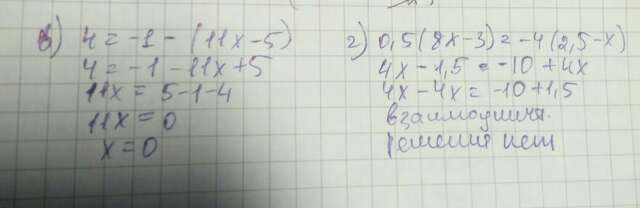 в) 4 = -1 - (11x-5)
4 = -1 - 11x+5
11x = 5-1-4
11x = 0
x=0
г) 0,5(8x-3)=-4(2,5-x)
4x-1,5 = -10+4x
4x-4x=-10+1,5
решения нет